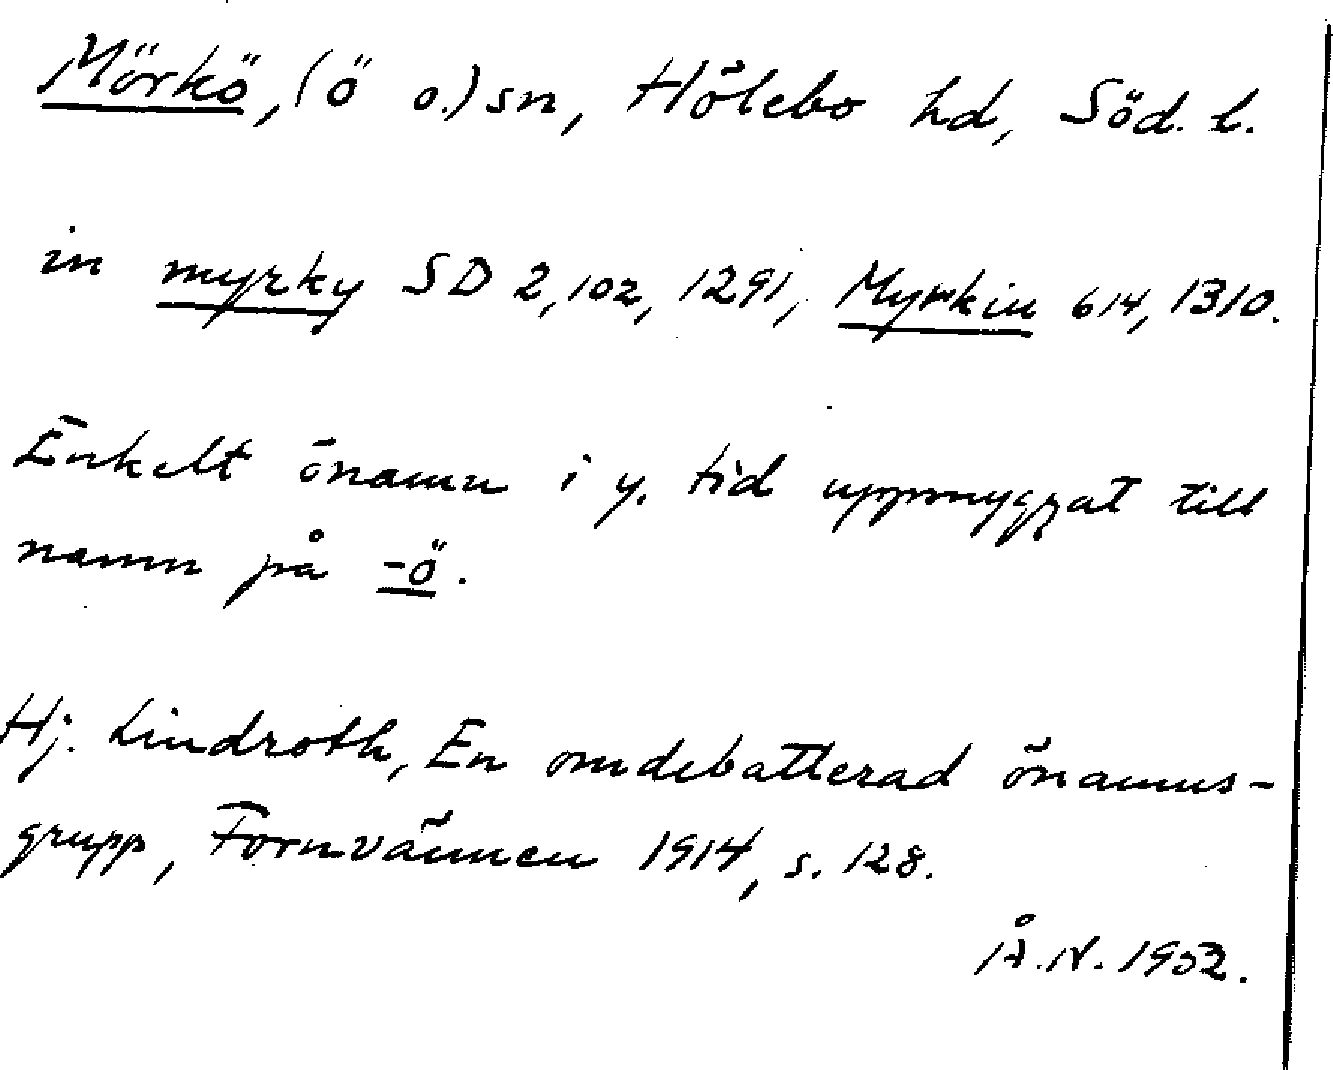 Mörkö, (ö o.) sn, Hölebo hd, Söd. l.
in myrky SD 2,102, 1291, Myrkiu 614, 1310.
Enkelt önamn i y. tid uppmyggat till
namn på -ö.
Hj. Lindroth, En omdebatterad önamns-
grupp, Fornvännen 1914, s. 128.
Å.N. 1952.